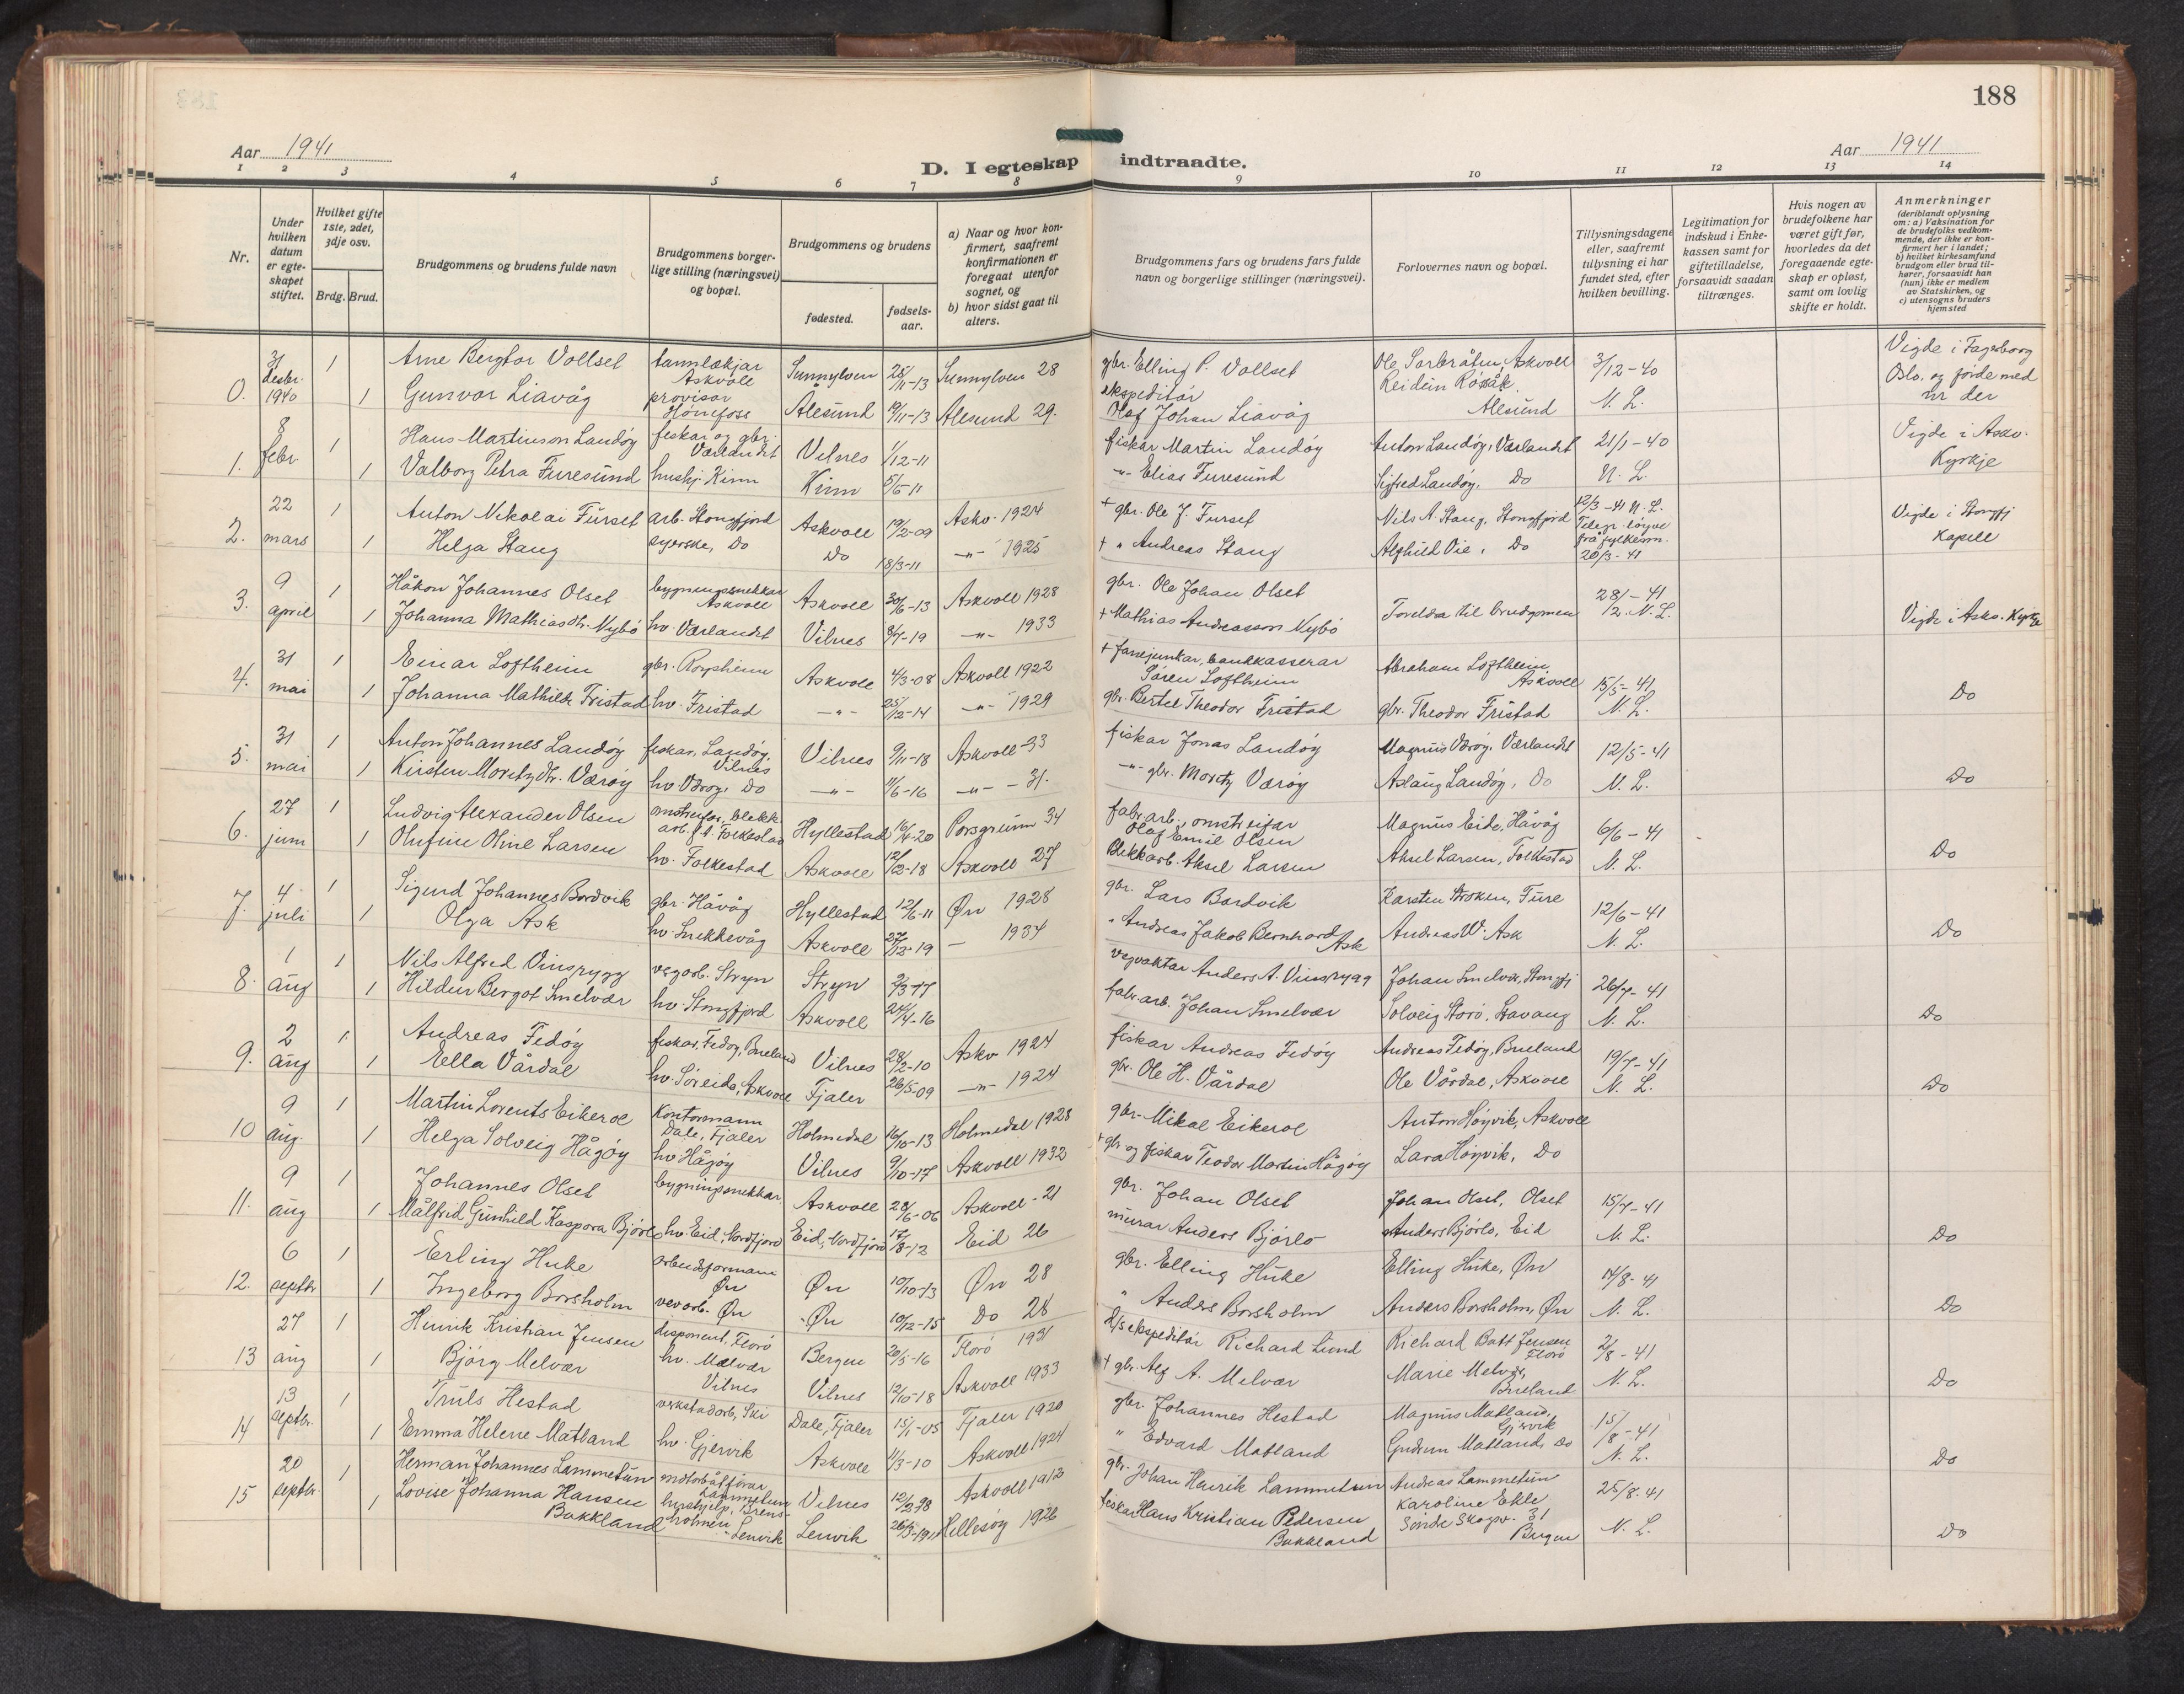 188
Aar 1941
D. I egteskap indtraadte.
Aar 1941
1 2 3 4 5 6 7 8 9 10 11 12 13 14
Nr.
Under hvilken datum er egteskapet stiftet.
Hvilket gifte 1ste, 2det, 3dje osv.
Brdg. Brud.
Brudgommens og brudens fulde navn
Brudgommens borgerlige stilling (næringsvei) og bopæl.
Brudgommens og brudens
fødested.
fødselsaar.
a) Naar og hvor konfirmert, saafremt konfirmationen er foregaat utenfor sognet, og
b) hvor sidst gaat til alters.
Brudgommens fars og brudens fars fulde navn og borgerlige stillinger (næringsvei).
Forlovernes navn og bopæl.
Tillysningsdagene eller, saafremt tillysning ei har fundet sted, efter hvilken bevilling.
Legitimation for indskud i Enkekassen samt for giftetilladelse, forsaavidt saadan tiltrænges.
Hvis nogen av brudefolkene har været gift før, hvorledes da det foregaaende egteskap er opløst, samt om lovlig skifte er holdt.
Anmerkninger (deriblandt oplysning om: a) Vaksination for de brudefolks vedkommende, der ikke er konfirmert her i landet; b) hvilket kirkesamfund brudgom eller brud tilhører, forsaavidt han (hun) ikke er medlem av Statskirken, og c) utensogns bruders hjemsted
0. 31 desbr. 1940 1 Arne Bergtor Vollset tannlækjar Askvoll Sunnylven 25/11-13 Sunnylven 28 gbr. Elling P. Vollset Ole Sorbråten, Askvoll 3/12-40 Vigde i Fagerborg
1 Gunvor Liavåg provisor Hønefoss Ålesund 19/11-13 Ålesund 29. ekspeditør Olaf Johan Liavåg Reidun Alesund N. L. Oslo, og førde med nr der
1. 8 febr 1 Hans Martinson Landøy fiskar og gbr. Værlandet Vilnes 1/12-11 fiskar Martin Landøy Anton Landøy, Værlandet 21/1-40 Vigde i Askv.
1 Valborg Petra Furesund hushj. Kinn Kinn 5/5-11 -"- Elias Furesund Sigfred Landøy, Do N. L. Kyrkje
2. 22 mars 1 Anton Nikolai Furset arb. Stongfjord Askvoll 19/2-09 Askv. 1924 + gbr. Ole J. Furset Nils A. Stang, Stongfjord 12/3-41 N. L. Vigde i Stongfj
1 Helga Stang syerske, Do Do 18/3-11 -"- 1925 + " Andreas Stang Alghild Vie, Do Telegr. løyve frå fylkesm. 20/3-41 Kapell
3. 9 april 1 Håkon Johannes Olset bygningssnekkar Askvoll Askvoll 30/6-13 Askvoll 1928 gbr. Ole Johan Olset 28/-41
1 Johanna Mathiasdtr. Nybø hv. Værlandet Vilnes 8/7-19 -"- 1933 + Mathias Andreasson Nybø Foreldra til brudgomen /2. N. L. Vigde i Askv. Kyrkje
4. 31 mai 1 Einar Loftheim gbr. Askvoll 4/3-08 Askvoll 1922 + fanejunkar, bankkasserar Søren Loftheim Abraham Loftheim, Askvoll 15/5-41
1 Johanna Mathilde Fristad hv. Fristad -"- 25/12-14 -"- 1929 gbr. Bertel Theodor Fristad gbr. Theodor Fristad N. L. Do
5. 31 mai 1 Anton Johannes Landøy fiskar, Landøy Vilnes Vilnes 9/11-18 Askvoll-33 fiskar Jonas Landøy Magnus Værøy, Værlandet 12/5-41
1 Kirsten Moritzdtr. Værøy hv Værøy, Do -"- 11/6-16 -"- - 31. -"- gbr. Moritz Værøy Aslaug Landøy, Do N. L. Do
6. 27 juni 1 Ludvig Alexander Olsen omstreifar, blekkarb. f.t. Folkestad Hyllestad 16/4-20 Porsgrunn 34 fabr.arb., omstreifar Olaf Emil Olsen Magnus Eide, Håvåg 6/6-41
1 Olufine Oline Larsen hv. Folkestad Askvoll 12/2-18 Askvoll 27 Blekkarb. Aksel Larsen Aksel Larsen, Folkestad N. L. Do
7. 4 juli 1 Sigurd Johannes Bordvik gbr. Håvåg Hyllestad 12/6-11 Øn 1928 gbr. Lars Bordvik Karsten Kroken, Fure 12/6-41
1 Olga Ask hv. Snekkevåg Askvoll 27/12-19 — 1934 " Andreas Jakob Bernhard Ask Andreas W. Ask N. L. Do
8. 1 aug 1 Nils Alfred Vinsrygg vegarb. Stryn Stryn 9/3-17 vegvaktar Anders A. Vinsrygg Johan Smelvær, Stongfj 26/7-41
1 Hildur Bergot Smelvær hv. Stongfjord Askvoll 24/4-16 fabr.arb. Johan Smelvær Solveig Storø, Stavang N. L. Do
9. 2 aug 1 Andreas Fedøy fiskar, Fedøy, Bueland Vilnes 28/2-10 Askv 1924 fiskar Andreas Fedøy Andreas Fedøy, Bueland 19/7-41
1 Ella Vårdal hv. Søreide, Askvoll Fjaler 26/5-09 -"- 1924 gbr. Ole H. Vårdal Ole Vårdal, Askvoll N. L. Do
10 9 aug. 1 Martin Lorents Eikerol Kontormann Dale, Fjaler Holmedal 16/10-13 Holmedal 1928 gbr. Mikal Eikerol Anton Høyvik, Askvoll
1 Helga Solveig Hågøy hv Hågøy Vilnes 9/10-17 Askvoll 1932 + gbr og fiskar Teodor Martin Hågøy Lara Høyvik, Do
11. 9 aug 1 Johannes Olset bygningssnekkar Askvoll 28/6-06 Askvoll-21 gbr. Johan Olset Johan Olset, Olset 15/7-41
1 Målfrid Gunhild Kaspara Bjørlo hv. Eid, Nordfjord Eid, Nordfjord 17/8-12 Eid 26 murar Anders Bjørlo Anders Bjørlo, Eid N. L. Do
12. 6 septbr 1 Erling Huke arbeidsformann Øn Øn 10/10-13 Øn 28 gbr. Elling Huke Elling Huke, Øn 14/8-41
1 Ingeborg Borsholm vevarb. Øn Øn 10/12-15 Do 28 " Anders Borsholm Anders Borsholm, Øn N. L. Do
13 27 aug 1 Henrik Kristian Jensen disponent, Florø Bergen 20/5-16 Florø 1931 d/s ekspeditør Richard Lund Richard Bott Jensen Florø 2/8-41
1 Bjørg Melvær hv. Melvær Vilnes Vilnes 12/10-18 Askvoll 1933 + gbr. Alf A. Melvær Marie Melvær, Bueland N. L. Do
14 13 septbr. 1 Truls Hestad verkstadarb, Ski Dale, Fjaler 15/1-05 Fjaler 1920 gbr. Johannes Hestad Magnus Matland, Gjervik 15/8-41
1 Emma Helene Matland hv. Gjervik Askvoll 11/3-10 Askvoll 1924 " Edvard Matland Gudrun Matland, Do N. L. Do
15 20 septbr. 1 Herman Johannes Lammetun motorbåtførar Lammetun Vilnes 12/2-98 Askvoll 1912 gbr. Johan Henrik Lammetun Andreas Lammetun 25/8-41
1 Lovise Johanna Hansen Bakkland hushjelp, Brensholmen, Lenvik Lenvik 26/3-1911 Hillesøy 1926 fiskar Hans Kristian Pedersen Bakkland Karoline Ekle Søndre Skogv. 31 Bergen N. L. Do